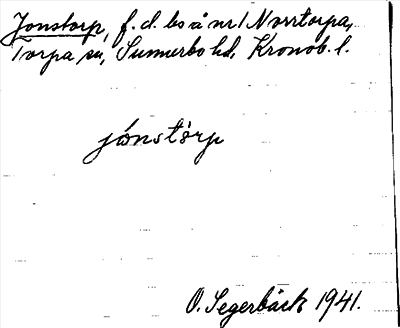 Jonstorp, f.d. bs å nr 1 Norrtorpa,
Torpa sn, Sunnerbo hd, Kronob. l.
jónstòrp
O. Segerbäck 1941.